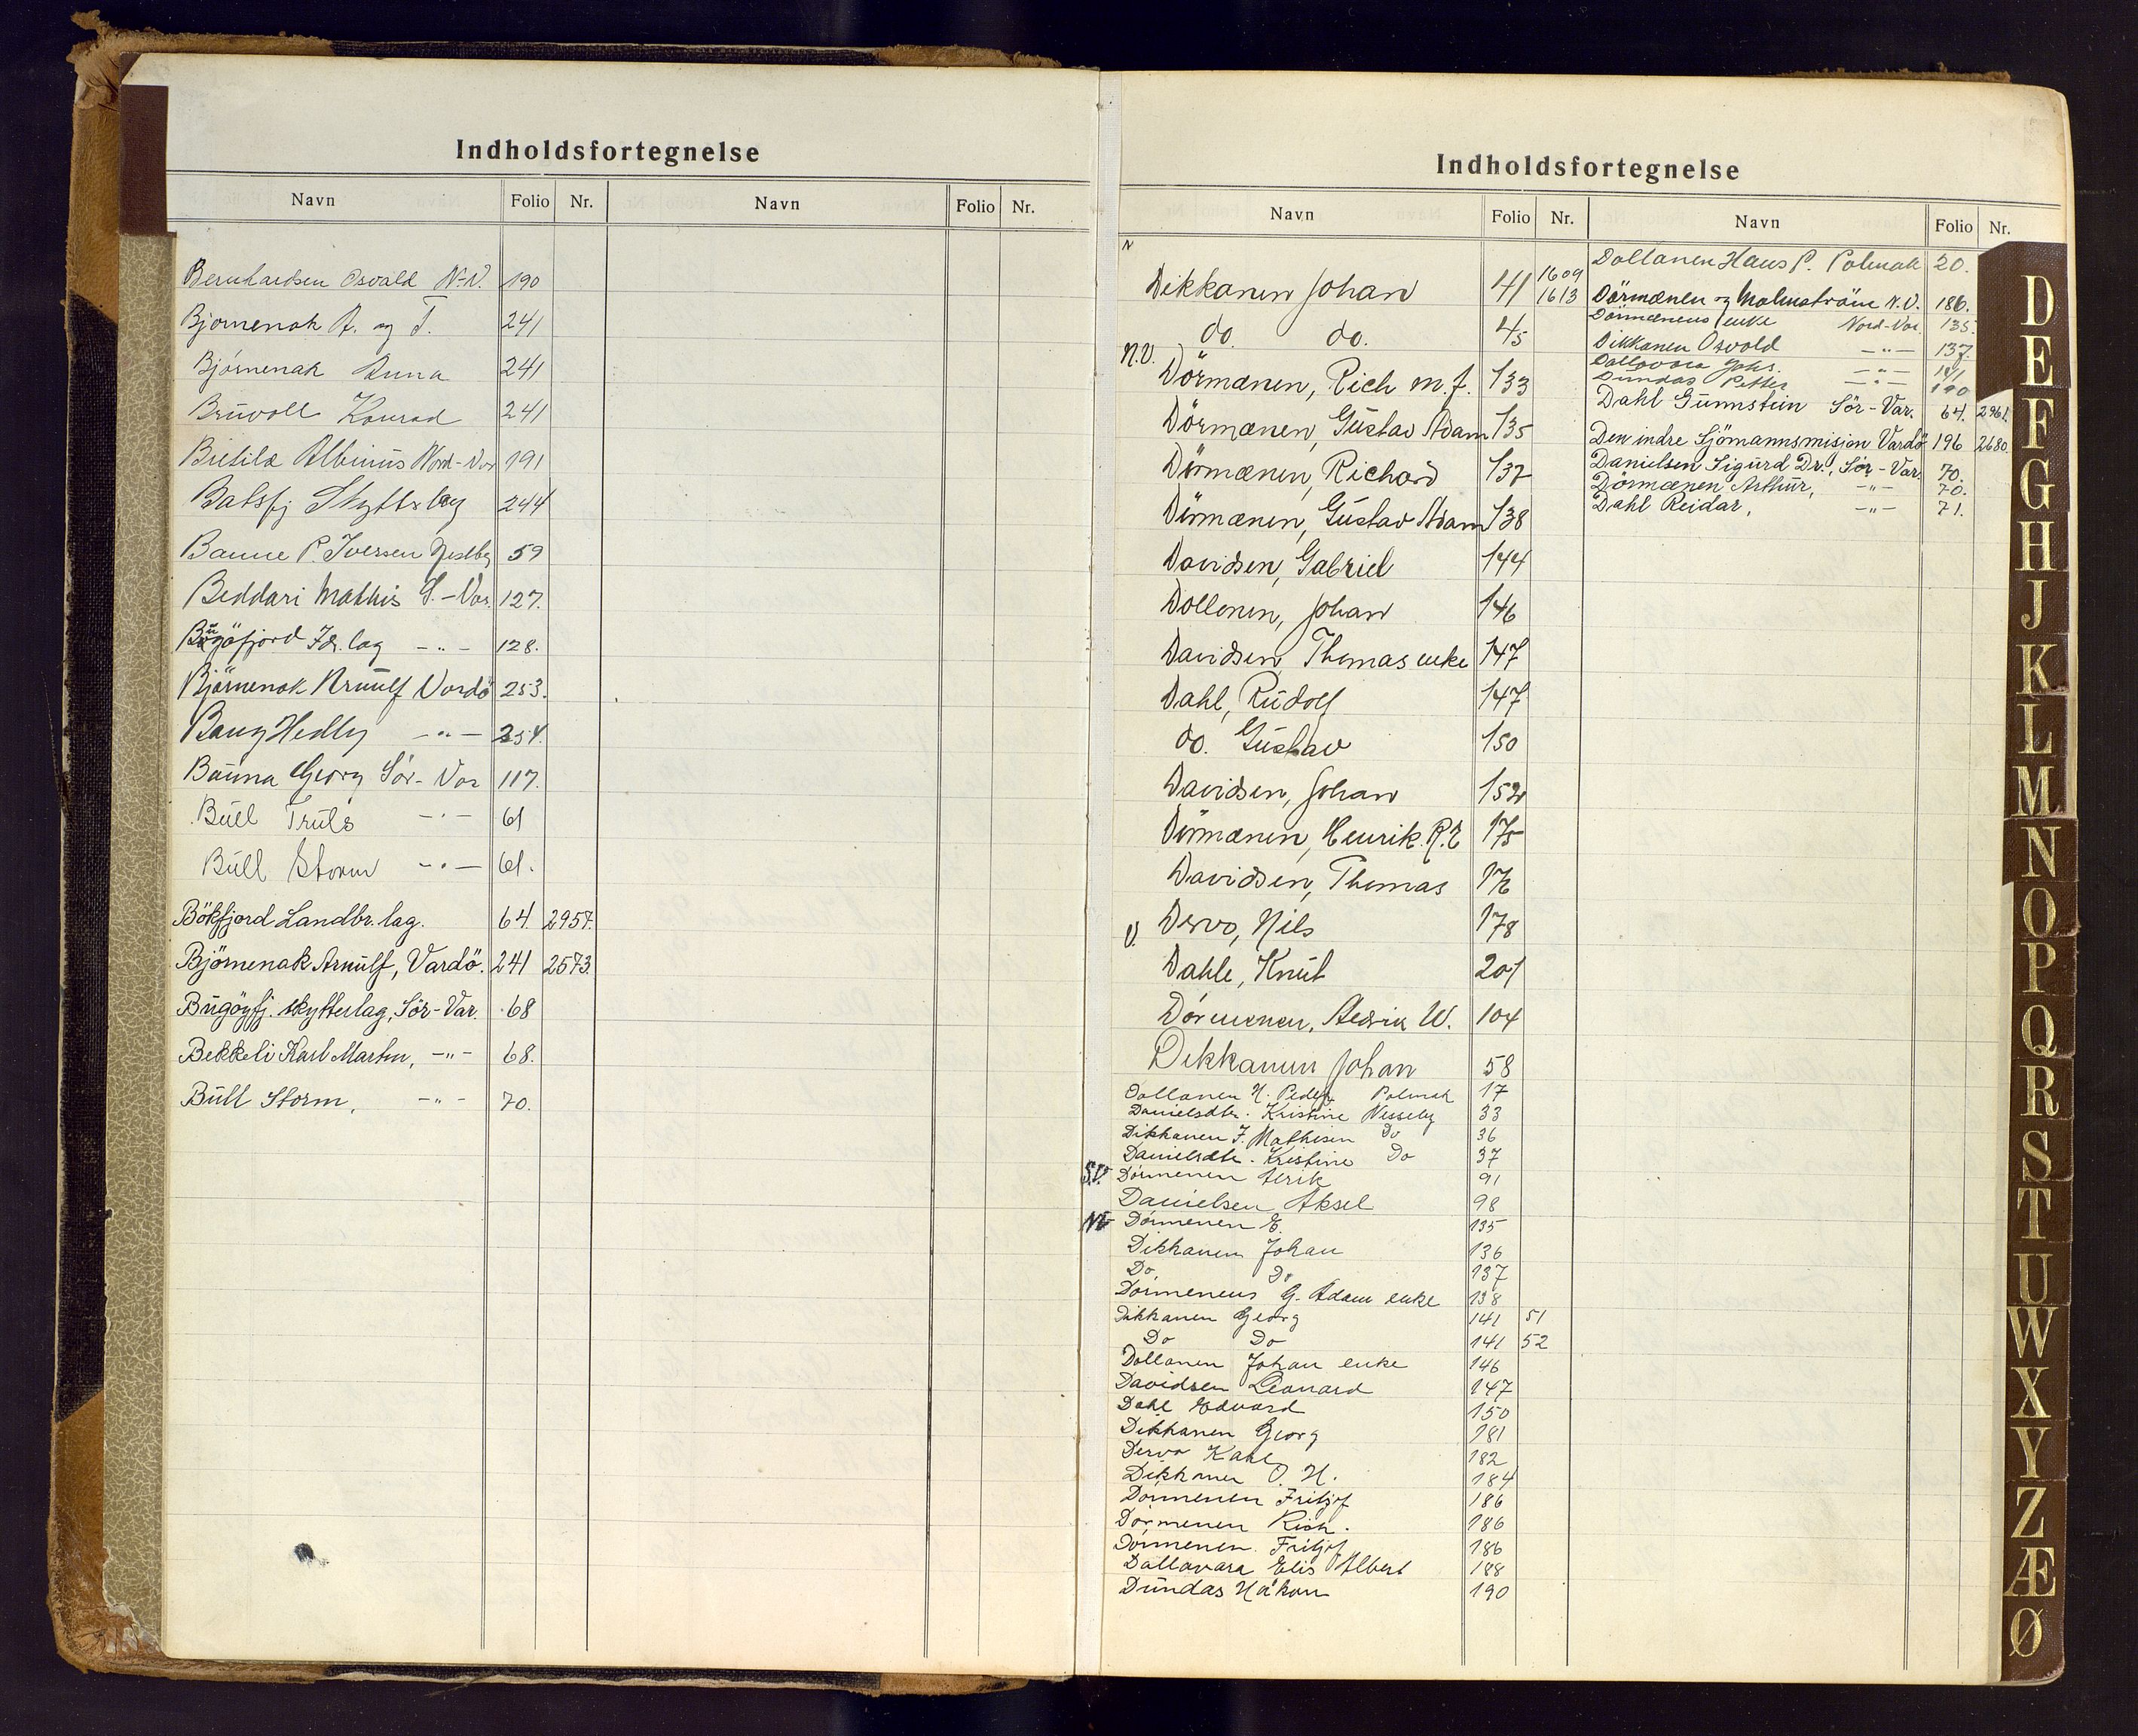 Indholdsfortegnelse
Navn Folio Nr. Navn Folio Nr.
Bernhardsen Osvald N-V. 190
Bjørnenak A. og T. 241
Bjørnenak Anna 241
Bruvoll Konrad 241
Bietilæ Albinus Nord-Var 191
Batsfj Skytterlag 244
Banne P. Iversen Nesseby 59
Beddari Mathis S.-Var. 127.
Bugöfjord Idr. lag -"- 128.
Björnenak Arnulf Vardö 253.
Bang Hedly -"- 254.
Banna Georg Sör-Var 117.
Bull Truls -"- 61
Bull Storm -"- 61.
Bökfjord Landbr. lag. 64. 2957.
Björnenak Arnulf, Vardö. 241 2573.
Bugöyfj. skytterlag, Sör-Var. 68
Bekkeli Karl Martin, -"- 68.
Bull Storm, -"- 70.
Indholdsfortegnelse
Navn Folio Nr. Navn Folio Nr.
N
Dikkanen Johan 41 1609 1613
do. do. 45
N.V.
Dörmænen, Rich m.f. 133
Dörmænen, Gustav Adam 135
Dörmænen, Richard 137
Dörmænen, Gustav Adam 138
Davidsen, Gabriel 144
Dollonen, Johan 146
Davidsen Thomas enke 147
Dahl, Rudolf 147
do. Gustav 150
Davidsen, Johan 152
Dörmænen, Henrik. R.E 175
Davidsen, Thomas 176
V. Dervo, Nils 178
Dahle, Knut 201
Dörmenen, Aedrik W. 104
Dikkanen Johan 58
Dollanen H. Peder Polmak 17
Danielsdtr. Kristine Nesseby 33
Dikkanen J. Mathisen Do 36
Danielsdtr. Kristine Do 37
S.V. Dörmenen Aerik 91
Danielsen Aksel 98
NV Dörmenen E. 135
Dikkanen Johan 136
Do Do 137
Dörmenens G. Adam enke 138
Dikkanen Georg 141 51
Do Do 141 52
Dollanen Johan enke 146
Davidsen Leonard 147
Dahl Edvard 150
Dikkanen Georg 181
Dervo Karl 182
Dikkanen O. H. 184
Dörmenen Fritjof 186
Dörmenen Rich. 186
Dörmenen Fritjof 186
Dallavara Elis Albert 188
Dundas Håkon 190
Dollanen Hans P. Polmak 20.
Dörmænen og Malmström N.V. 186.
Dörmænens enke Nord-Var. 135.
Dikkanen Osvold -"- 137.
Dallavara Johs. -"- 141
Dundas Petter -"- 190
Dahl Gunnstein Sör-Var. 64. 2961.
Den indre Sjömannsmisjon Vardö 196 2680.
Danielsen Sigurd Dr., Sör-Var. 70.
Dörmænen Arthur, -"- 70.
Dahl Reidar, -"- 71.
D
E
F
G
H
J
K
L
M
N
O
P
Q
R
S
T
U
W
X
Y
Z
Æ
Ø